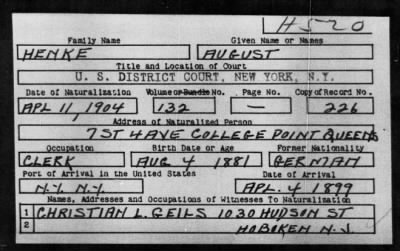 H520
Family Name Given Name or Names
HENKE AUGUST
Title and Location of Court
U. S. DISTRICT COURT, NEW YORK, N.Y.
Date of Naturalization Volume or Bundle No. Page No. Copy of Record No.
APL 11, 1904 132 — 226
Address of Naturalized Person
7 ST 4 AVE COLLEGE POINT QUEENS
Occupation Birth Date or Age Former Nationality
CLERK AUG 4 1881 GERMAN
Port of Arrival in the United States Date of Arrival
N.Y. N.Y. APL. 4 1899
Names, Addresses and Occupations of Witnesses To Naturalization
1 CHRISTIAN L. GEILS 1030 HUDSON ST
2 HOBOKEN N.J.